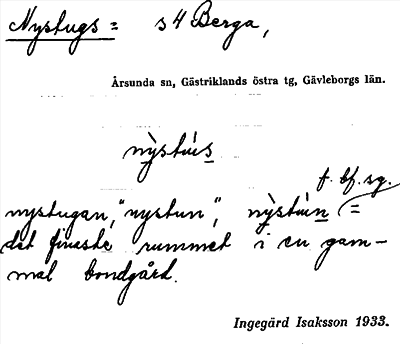 Nystugs= s4 Berga,
Årsunda sn, Gästriklands östra tg, Gävleborgs län.
nỳstús
f. bf. sg.
nystugan, "nystun", nỳstún =
det finaste rummet i en gam-
mal bondgård.
Ingegärd Isaksson 1933.